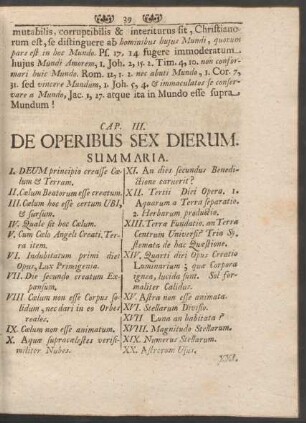 39
mutabilis, corruptibilis & interiturus sit, Christiano-
rum est, se distinguere ab hominibus hujus Mundi, quorum
pars est in hoc Mundo. Ps. 17. 14 fugere immoderatum
hujus Mundi Amorem, 1. Joh. 2, 15. 2. Tim. 4, 10. non confor-
mari huic Mundo. Rom. 12, 1. 2. nec abuti Mundo, 1. Cor. 7,
31. sed vincere Mundum, 1. Joh. 5, 4. & immaculatos se conser-
vare a Mundo, Jac. 1, 27. atque ita in Mundo esse supra
Mundum!
CAP. III.
DE OPERIBUS SEX DIERUM.
SUMMARIA.
I. DEUM principio creasse Cœ-
lum & Terram.
II. Cœlum Beatorum esse creatum.
III. Cœlum hoc esse certum UBI,
& sursum.
IV. Quale sit hoc Cælum.
V. Cum Cœlo Angeli Creati, Ter-
ra item.
VI. Indubitatum primi diei
Opus, Lux Primigenia.
VII. Die secundo creatum Ex-
pansum,
VIII. Cœlum non esse Corpus so-
lidum, nec dari in eo Orbes
reales.
IX. Cœlum non esse animatum.
X. Aquæ supracœlestes verisi-
militer Nubes.
XI. An dies secundus Benedi-
ctione caruerit?
XII. Tertii Diei Opera, 1.
Aquarum a Terra separatio.
2. Herbarum productio.
XIII. Terræ Fundatio, an Terra
Centrum Universi? Tria Sy-
stemata de hac Quæstione.
XIV. Quarti diei Opus Creatio
Luminarium; quæ Corpora
ignea, lucida sunt. Sol for-
maliter Calidus.
XV. Astra non esse animata.
XVI. Stellarum Divisio.
XVII Luna an habitata?
XVIII. Magnitudo Stellarum.
XIX. Numerus Stellarum.
XX. Astrorum Usus.
XXI.